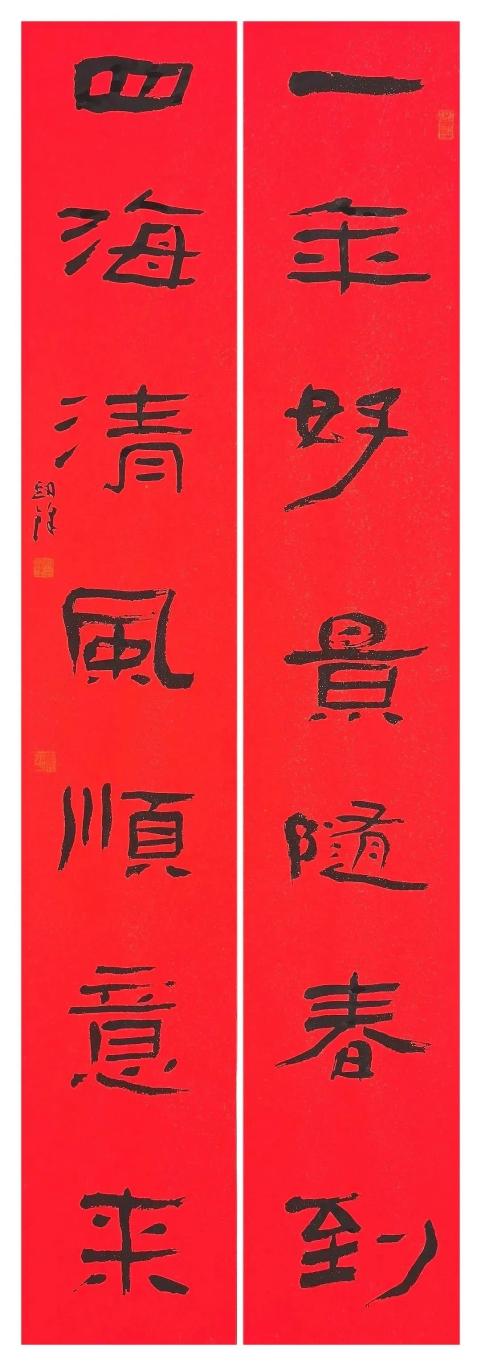 一年好景隨春到
四海清風順意来